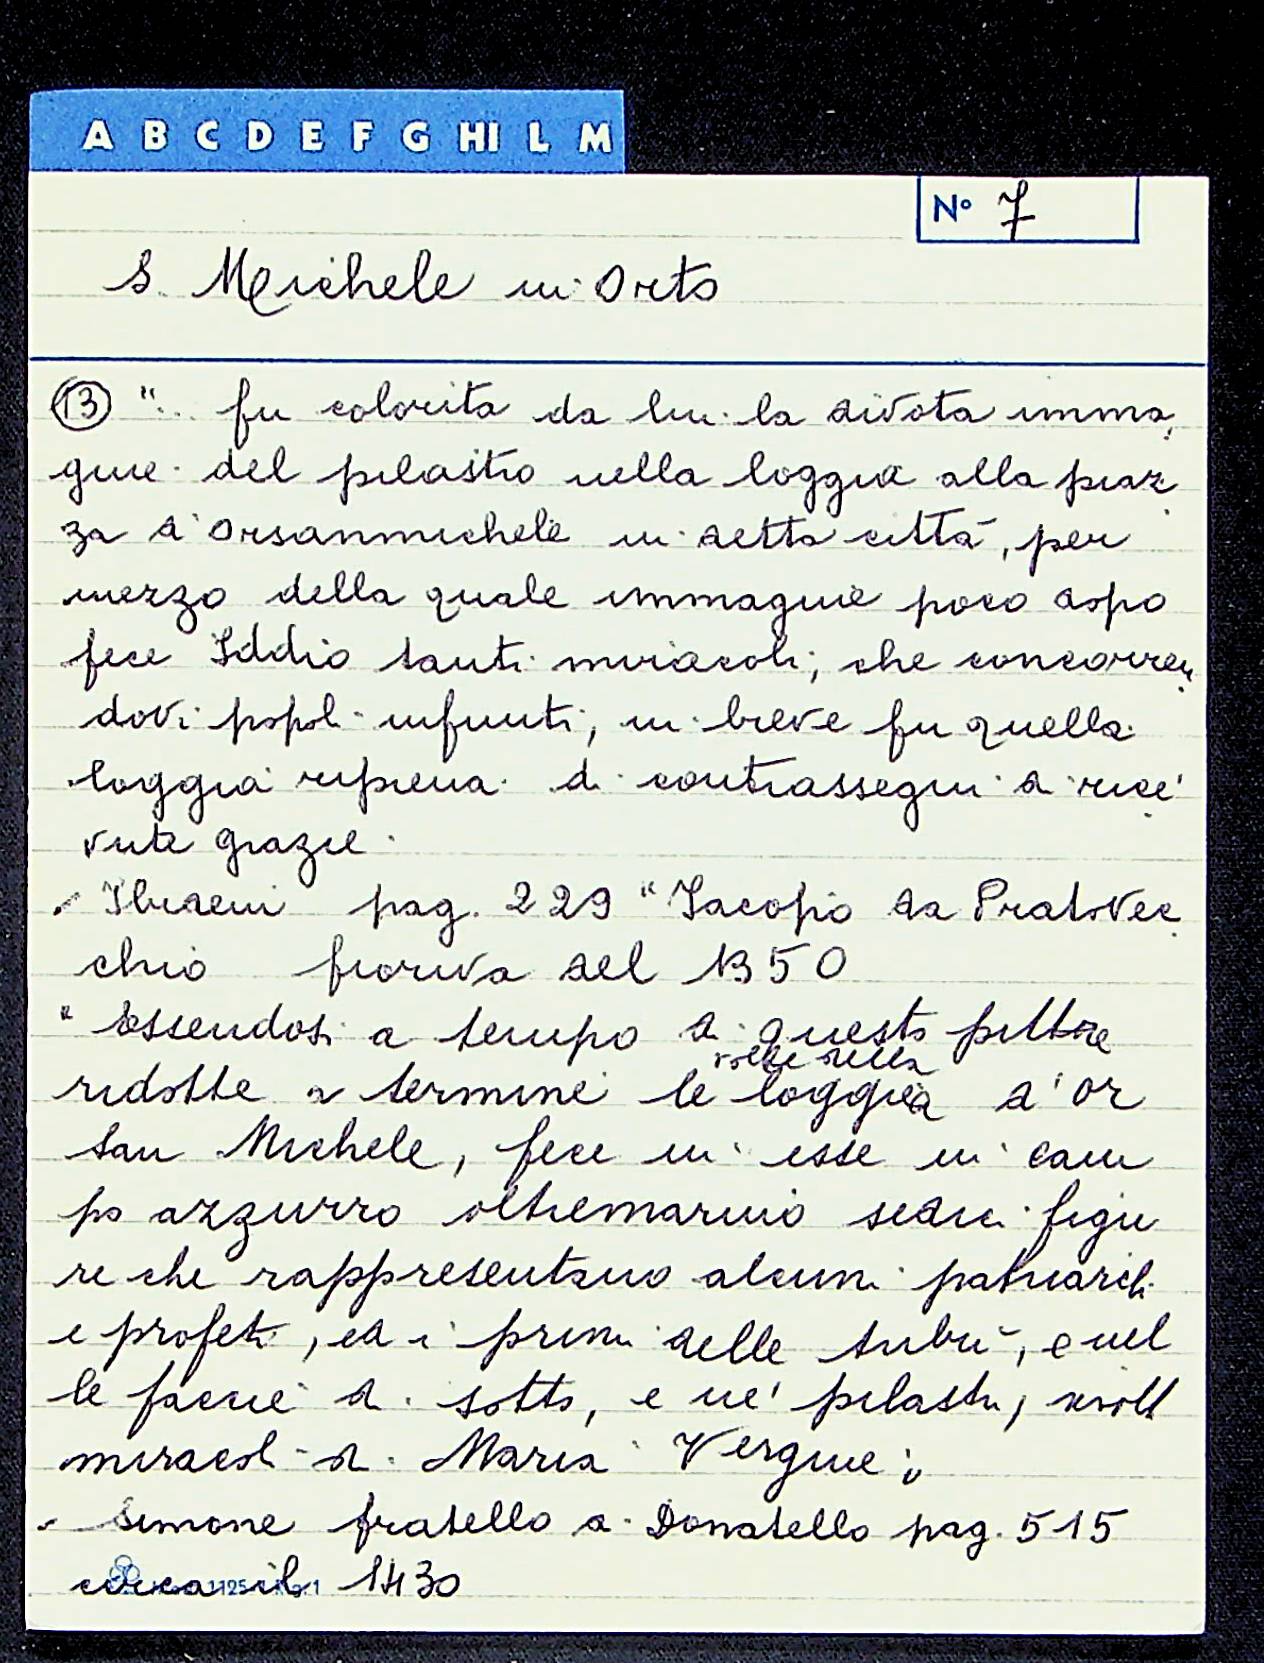 A B C D E F G HI L M
Nº 7
S. Michele in Orto
(13) "... fu colorita da lui la divota imma
gine del pilastro nella loggia alla piaz
za d'Orsanmichele in detta città, per
mezzo della quale immagine poco dopo
fece Iddio tanti miracoli, che concorren
dovi popoli infiniti, in breve fu quella
loggia ripiena di contrassegni di rice
vute grazie.
Ibidem pag. 229 "Jacopo da Pratovec
chio fioriva del 1350
" Essendosi a tempo di questo pittore
volte della
ridotte a termine le loggia d'Or
San Michele, fece in esse in cam
po azzurro oltremarino sedici figu
re che rappresentano alcuni patriarchi
e profeti, ed i primi delle tribù, e nel
le faccie di sotto, e ne' pilastri, molti
miracoli di Maria Vergine;
Simone fratello di Donatello pag. 515
circa il 1430